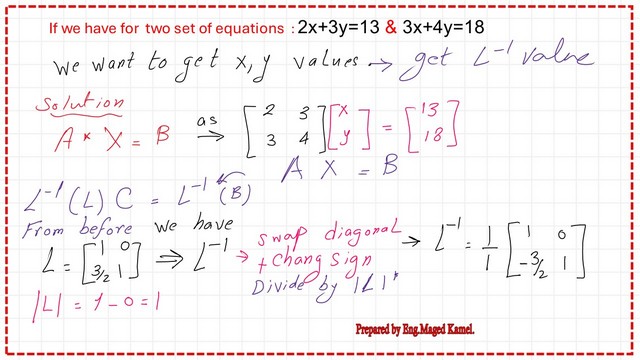 If we have for two set of equations : 2x+3y=13 & 3x+4y=18
we want to get x, y values → get L⁻¹ value
Solution
A * X = B as → [2 3; 3 4] [x; y] = [13; 18]
A X = B
L⁻¹ (L) C = L⁻¹ (B)
From before we have
L = [1 0; 3/2 1] ⇒ L⁻¹ → swap diagonal + Chang sign Divide by |L| → L⁻¹ = 1/1 [1 0; -3/2 1]
|L| = 1 - 0 = 1
Prepared by Eng.Maged Kamel.